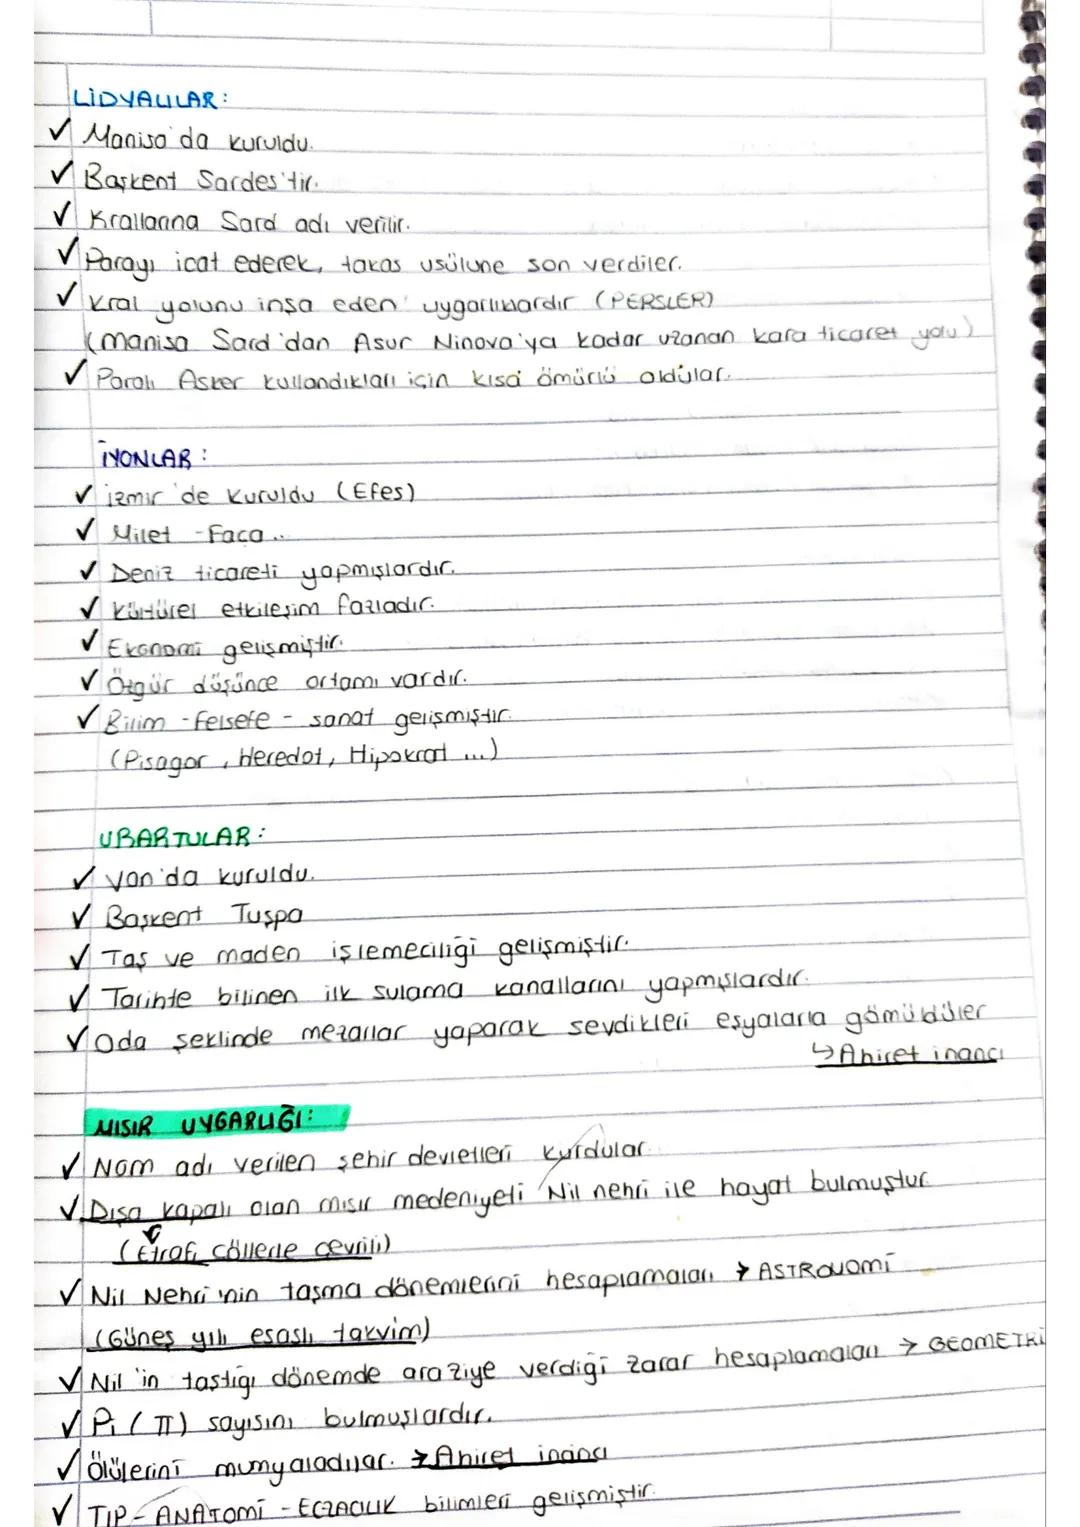 LİDYALILAR:
✓ Manisa'da kuruldu.
✓ Başkent Sardes'tir.
✓ Krallarına Sard adı verilir.
✓ Parayı icat ederek, takas usülüne son verdiler.
✓ Kral yolunu inşa eden uygarlıklardır (PERSLER)
(Manisa Sard'dan Asur Ninova'ya kadar uzanan kara ticaret yolu)
✓ Paralı Asker kullandıkları için kısa ömürlü oldular.
İYONLAR:
✓ İzmir'de kuruldu (Efes)
✓ Milet - Faça..
✓ Deniz ticareti yapmışlardır.
✓ Kültürel etkileşim fazladır.
✓ Ekonomi gelişmiştir.
✓ Özgür düşünce ortamı vardır.
✓ Bilim - felsefe - sanat gelişmiştir.
(Pisagor, Heredot, Hipokrat ...)
URARTULAR:
✓ Van'da kuruldu.
✓ Başkent Tuşpa
✓ Taş ve maden işlemeciliği gelişmiştir.
✓ Tarihte bilinen ilk sulama kanallarını yapmışlardır.
✓ Oda şeklinde mezarlar yaparak sevdikleri eşyalarla gömüldüler
↳ Ahiret inancı
MISIR UYGARLIĞI:
✓ Nom adı verilen şehir devletleri kurdular.
✓ Dışa kapalı olan mısır medeniyeti Nil nehri ile hayat bulmuştur.
(Etrafı çöllerle çevrili)
✓ Nil Nehri'nin taşma dönemlerini hesaplamaları → ASTRONOMİ
(Güneş yılı esaslı takvim)
✓ Nil'in taştığı dönemde araziye verdiği zarar hesaplamaları → GEOMETRİ
✓ Pi (π) sayısını bulmuşlardır.
✓ Ölülerini mumyaladılar. → Ahiret inancı
✓ TIP - ANATOMİ - ECZACILIK bilimleri gelişmiştir.